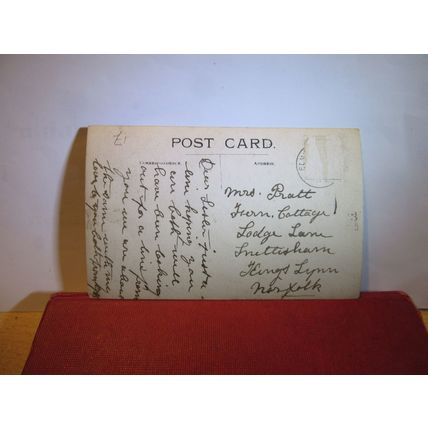 £1
POST CARD.
CORRESPONDENCE.
ADDRESS.
Dear Sister just a
line hoping you
are both well
have been looking
out for a line from
you we are about
the same with me
love to you both from
Mrs. Pratt
Fern Cottage
Lodge Lane
Snettisham
Kings Lynn
Norfolk